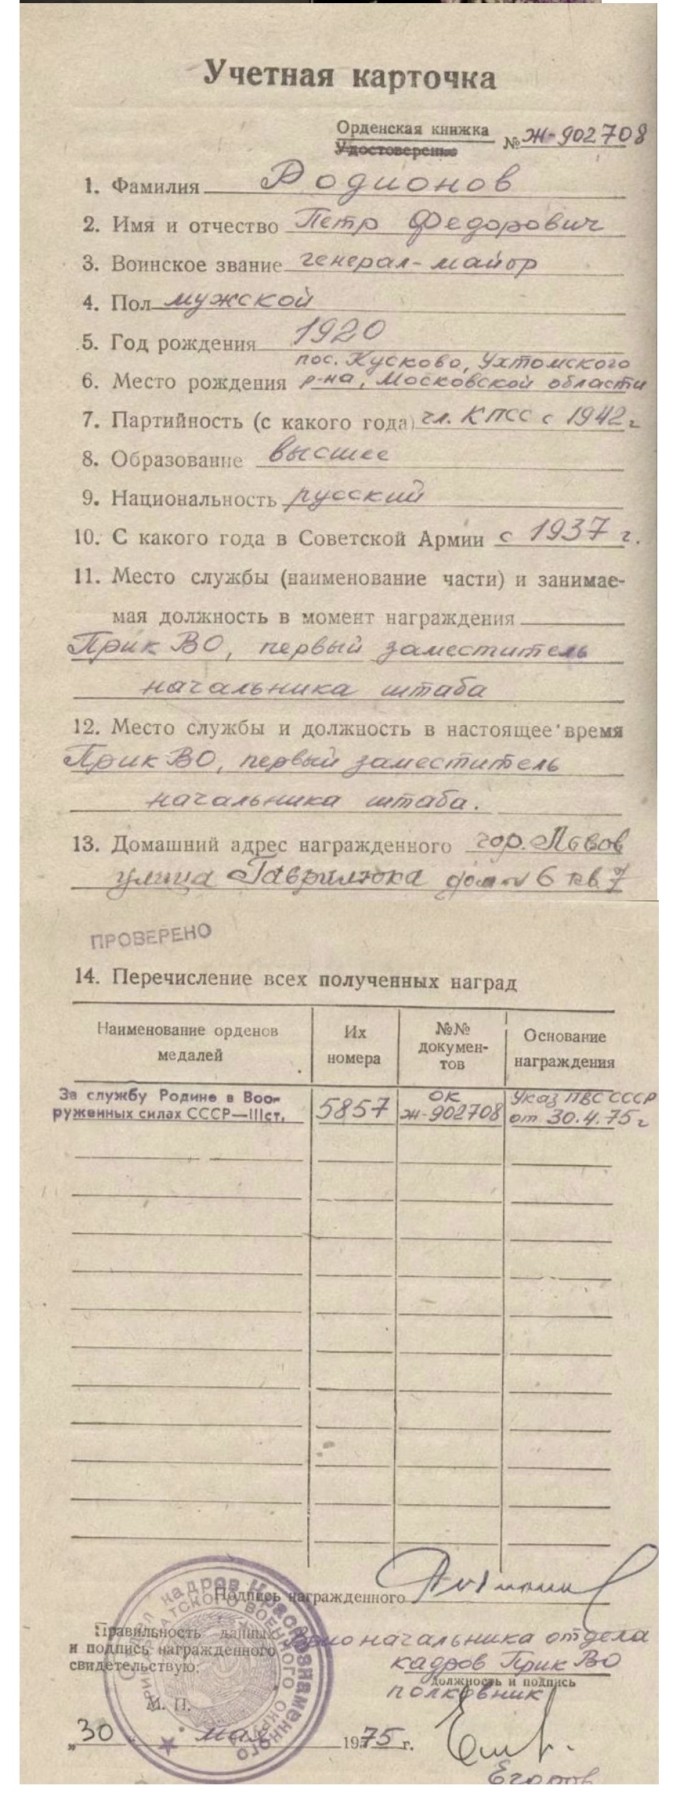 Учетная карточка
Орденская книжка
Удостоверение
№ Ж-902708
1. Фамилия Родионов
2. Имя и отчество Петр Федорович
3. Воинское звание генерал-майор
4. Пол мужской
5. Год рождения 1920
пос. Кусково, Ухтомского
6. Место рождения р-на, Московской области
7. Партийность (с какого года) чл. КПСС с 1942 г
8. Образование высшее
9. Национальность русский
10. С какого года в Советской Армии с 1937 г.
11. Место службы (наименование части) и занимае-
мая должность в момент награждения
ПрикВО, первый заместитель
начальника штаба
12. Место службы и должность в настоящее время
ПрикВО, первый заместитель
начальника штаба.
13. Домашний адрес награжденного гор. Львов
улица Гаврилюка дом 6 кв 7
ПРОВЕРЕНО
14. Перечисление всех полученных наград
Наименование орденов медалей
Их номера
№№ докумен-тов
Основание награждения
За службу Родине в Воо-
руженных силах СССР—IIIст.
5857
ОК
Ж-902708
Указ ПВС СССР
от 30.4.75 г
Подпись награжденного
Правильность данных
и подпись награжденного
свидетельствую.
начальника отдела
кадров ПрикВО
должность и подпись
полковник
М. П.
„30 мая 1975 г.
Егоров